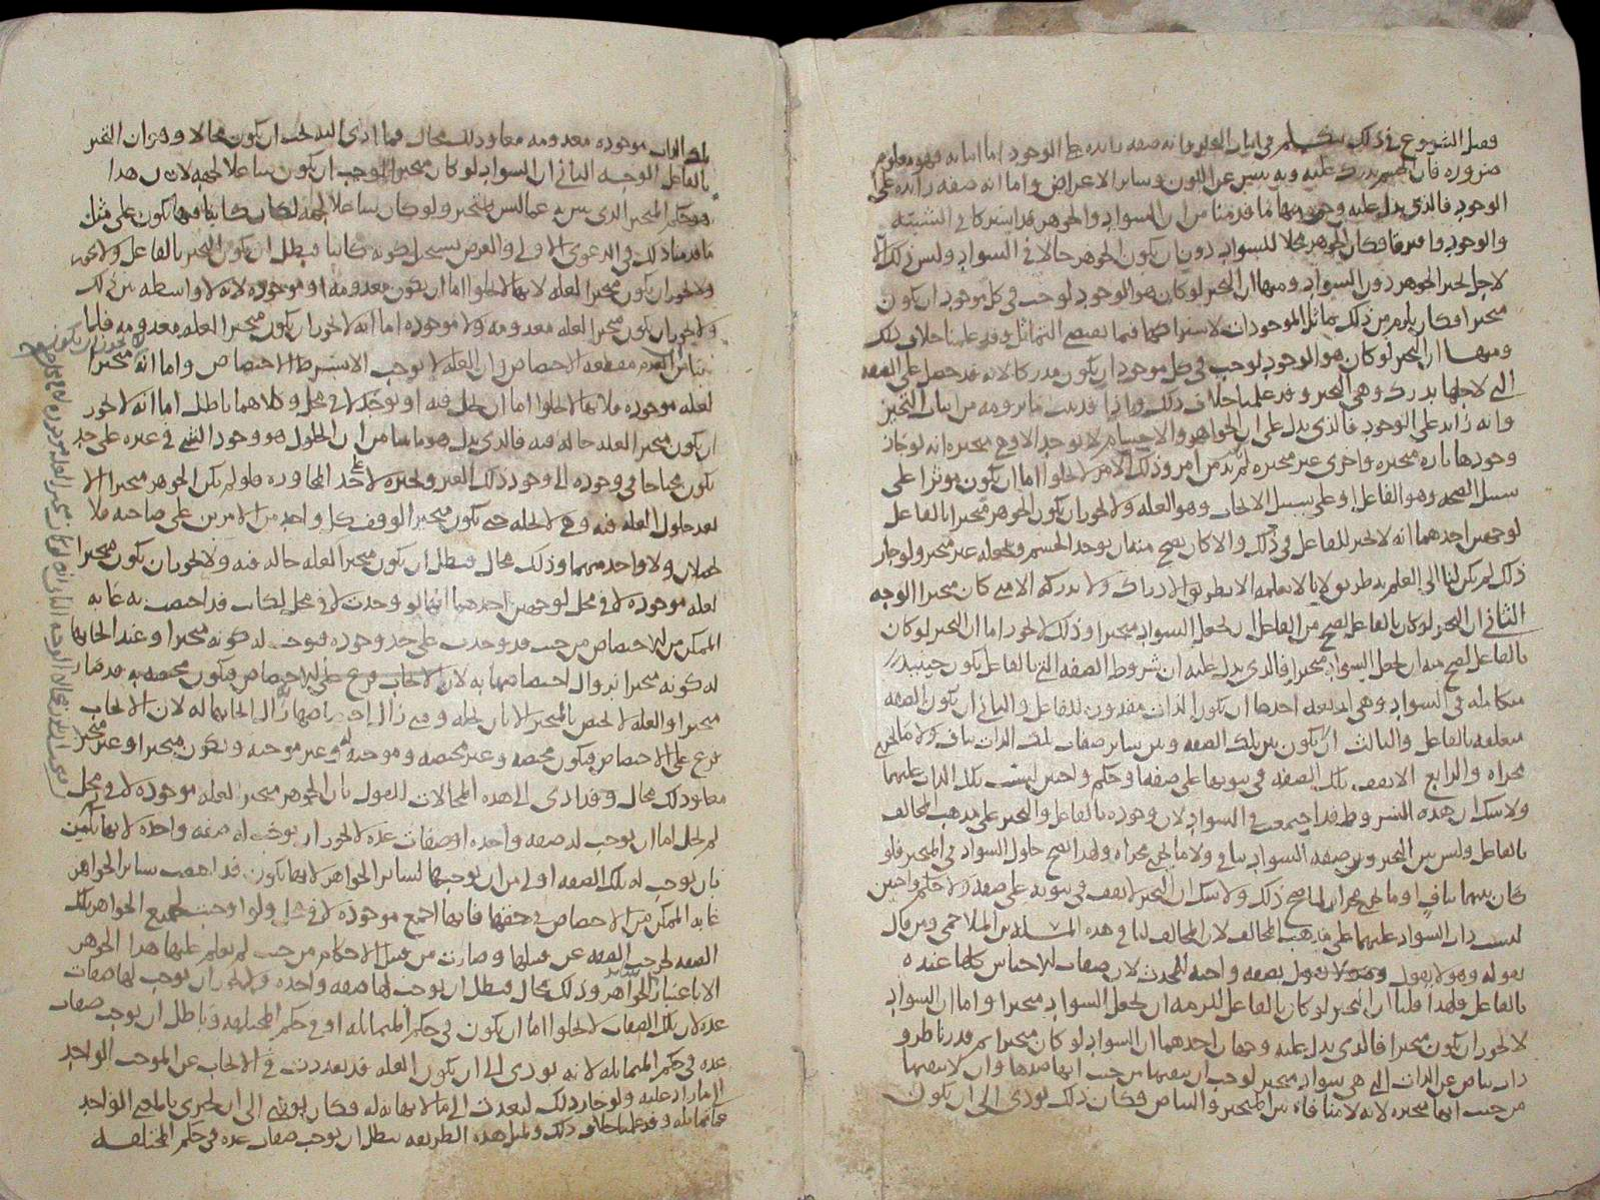 فصل الشروع في ذلك نتكلم في اثبات التحيز وانه صفه زايده على الوجود اما انه فهو معلوم
ضروره فان الجسم يدرك عليه وبه يتبين عن اللون وساير الاعراض واما انه صفه زايده على
الوجود فالذي يدل عليه وجوه منها ما قدمنا من ان السواد والجوهر قد اشتركا في الشيئيه
والوجود وافترقا فكان الجوهر محلا للسواد دون ان يكون الجوهر حالا في السواد وليس ذلك الا
لاجل تحيز الجوهر دون السواد ومنها ان التحيز لو كان هو الوجود لوجب في كل موجود ان يكون
متحيزا فكان يلزم من ذلك تماثل الموجودات لاشتراكها فيما يقتضي التماثل وقد علمنا خلاف ذلك
ومنها ان التحيز لو كان هو الوجود لوجب في كل موجود ان يكون مدركا لانه قد حصل على الصفه
التي لاجلها يدرك وهي التحيز وقد علمنا خلاف ذلك واذا قد ثبت ما نرومه من اثبات التحيز
وانه زايد على الوجود فالذي يدل على ان الجواهر والاجسام لا توجد الا وهي متحيزه انه لو جاز
وجودها تاره متحيزه واخرى غير متحيزه لم يكن بد من امر وذلك الامر لا يخلوا اما ان يكون موثرا على
سبيل الصحه وهو الفاعل او على سبيل الايجاب وهو العله ولا يجوز ان يكون الجوهر متحيزا بالفاعل
لوجهين احدهما انه لا تحيز للفاعل في ذلك والا كان يصح منه ان يوجد الجسم ويجعله غير متحيز ولو جاز
ذلك لم يكن لنا الى العلم به طريق لانا لا نعلمه الا بطريق الادراك ولا ندركه الا متى كان متحيزا الوجه
الثاني ان التحيز لو كان بالفاعل لصح من الفاعل ان يجعل السواد متحيزا وذلك لا يجوز اما ان التحيز لو كان
بالفاعل لصح منه ان يجعل السواد متحيزا فالذي يدل عليه ان شروط الصفه التي بالفاعل يكون حينيذ
متكامله في السواد وهي اربعه احدها ان يكون الذات مقدوره للفاعل والثاني ان يكون الصفه
متعلقه بالفاعل والثالث ان لا يكون بين تلك الصفه وبين ساير صفات تلك الذات تناف ولا ما يجري
مجراه والرابع الا تقف تلك الصفه في ثبوتها على صفه او حكم واجبين ليست تلك الذات عليهما
ولا شك ان هذه الشروط قد اجتمعت في السواد لان وجوده بالفاعل والتحيز على مذهب المخالف
بالفاعل وليس بين التحيز وبين صفه السواد تنافي ولا ما يجري مجراه ولهذا يصح حلول السواد في المتحيز فلو
كان بينهما تناف او ما يجري مجراه لما صح ذلك ولا شك ان التحيز لا يقف في ثبوته على صفه ولا حكم واجبين
ليست ذات السواد عليهما على مذهب المخالف لان المخالف لنا في هذه المسله بن الملاحمي ومن قال
بقوله وهو لا يقول بصفه واجبه للمحدث لان صفات الاجناس كلها عنده
بالفاعل فلهذا قلنا ان التحيز لو كان بالفاعل للزمه ان يجعل السواد متحيزا واما ان السواد
لا يجوز ان يكون متحيزا فالذي يدل عليه وجهان احدهما ان السواد لو كان متحيزا ثم قدرنا طرو
ذات بياض عن الذات التي هي سواد متحيز لوجب ان ينفيها من حيث انها ضدها وان لا ينفيها
من حيث انها متحيزه لانه لا منافاه بين المتحيز والبياض فكان ذلك يودي الى ان يكون
تلك الذات موجوده معدومه معا وذلك محال فما ادى اليه يجب ان يكون محالا وهو ان التحيز
بالفاعل الوجه الثاني ان السواد لو كان متحيزا لوجب ان يكون شاغلا للجهه لان هذا
هو حكم المتحيز الذي يتميز به عما ليس بمتحيز ولو كان شاغلا للجهه لكان كاينا فيها بكون على مثل
ما قدمناه ذلك في الدعوى الاولى والعرض يستحيل كونه كاينا فبطل ان يكون التحيز بالفاعل
ولا يجوز ان يكون متحيزا لعله لانها لا تخلوا اما ان تكون معدومه او موجوده لانه لا واسطه بين ذلك
ولا يجوز ان يكون متحيزا لعله معدومه ولا موجوده اما انه لا يجوز ان يكون متحيزا لعله معدومه فلما
بينا من ان العدم مقطعه الاختصاص وان العله لا توجب الا بشرط الاختصاص واما انه متحيزا
لعله موجوده فلانها لا تخلوا اما ان تحل فيه او توجد لا في محل وكلاهما باطل اما انه لا يجوز
ان يكون متحيزا لعله حاله فيه فالذي يدل هو ما بينا من ان الحلول هو وجود الشي في غيره على حد
يكون محتاجا في وجوده الى وجود ذلك الغير وتحيزه لا على حد المجاوره فلو لم يكن الجوهر متحيزا الا
بعد حلول العله فيه وهي لا تحله حتى يكون متحيزا لوقف كل واحد من الامرين على صاحبه فلا
يحصلان ولا واحد منهما وذلك محال فبطل ان يكون متحيزا لعله حاله فيه ولا يجوز ان يكون متحيزا
لعله موجوده لا في محل لوجهين احدهما انها لو وجدت لا في محل لكانت قد اختصت به غايه
الممكن من الاختصاص من حيث قد وجدت على حد وجوده فيوجب له كونه متحيزا وعند ايجابها
له كونه متحيزا يزول اختصاصها به لان الايجاب فرع على الاختصاص فيكون مختصه به قد صار
متحيزا والعله لا تختص بالمتحيز الا بان تحله ومتى زال اختصاصها زال ايجابها له لان الايجاب
فرع على الاختصاص فيكون مختصه وغير مختصه وموجبه له وغير موجبه ويكون متحيزا وغير متحيز
معا وذلك محال وقد ادى الى هذه المحالات القول بان الجوهر متحيز لعله موجوده لا في محل
لم تخل اما ان توجب له صفه واحده او صفات عده لا يجوز ان توجب له صفه واحده لانها ليست
بان توجب له تلك الصفه اولى من ان توجبها لساير الجواهر لانها تكون قد اختصت ساير الجواهر
غايه الممكن من الاختصاص في حقها فانها اجمع موجوده لا في محل ولو اوجبت لجميع الجواهر تلك
الصفه لخرجت الصفه عن قبيلها وصارت من قبيل الاحكام من حيث لم نعلم عليها هذا الجوهر
الا باعتبار ساير الجواهر وذلك محال فبطل ان توجب لها صفه واحده ولا يجوز ان توجب لها صفات
عده لان تلك الصفات لا تخلوا اما ان تكون في حكم المتماثله او في حكم المختلفه وباطل ان توجب صفات
عده في حكم المتماثله لانه يودي الى ان يكون العله قد تعدت في الايجاب عن الموجب الواحد
الى ما زاد عليه ولو جاز ذلك لتعدت الى ما لا نهايه له فكان يودي الى ان تجري بالمعنى الواحد
عما تماثله وقد علمنا خلاف ذلك وبمثل هذه الطريقه يبطل ان يوجب صفات عده في حكم المختلفه